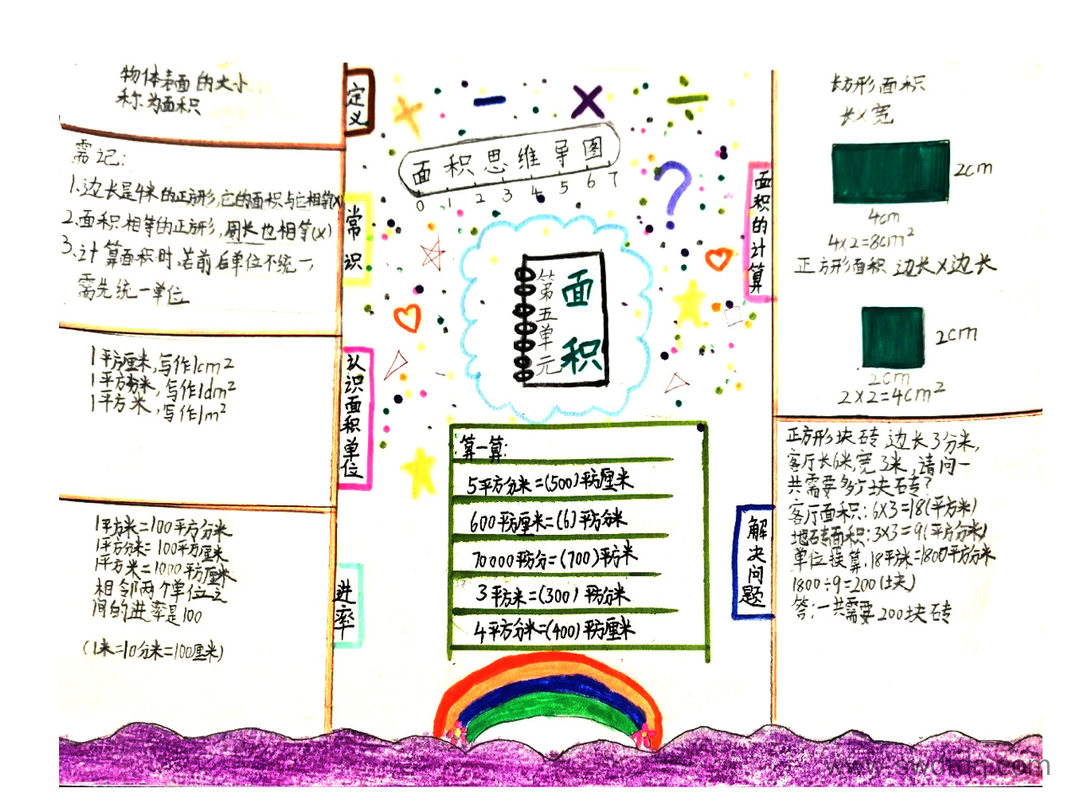 物体表面的大小
称为面积
定义
需记:
1.边长是4米的正方形,它的面积与它相等(x)
2.面积相等的正方形,周长也相等(x)
3.计算面积时,若前后单位不统一,
需先统一单位
常识
1平方厘米,写作1cm²
1平方分米,写作1dm²
1平方米,写作1m²
认识面积单位
1平方米=100平方分米
1平方分米=100平方厘米
1平方米=1000平方厘米
相邻两个单位之
间的进率是100
(1米=10分米=100厘米)
进率
+ − × ÷
面积思维导图
0 1 2 3 4 5 6 7
?
第五单元
面积
算一算:
5平方分米=(500)平方厘米
600平方厘米=(6)平方分米
70000平方分=(700)平方米
3平方米=(300)平方分米
4平方分米=(400)平方厘米
面积的计算
长方形面积
长×宽
2cm
4cm
4×2=8cm²
正方形面积 边长×边长
2cm
2cm
2×2=4cm²
解决问题
正方形块砖,边长3分米,
客厅长6米,宽3米,请问一
共需要多少块砖?
客厅面积:6×3=18(平方米)
地砖面积:3×3=9(平方分米)
单位换算:18平方米=1800平方分米
1800÷9=200(块)
答:一共需要200块砖
www.swdtdq.com